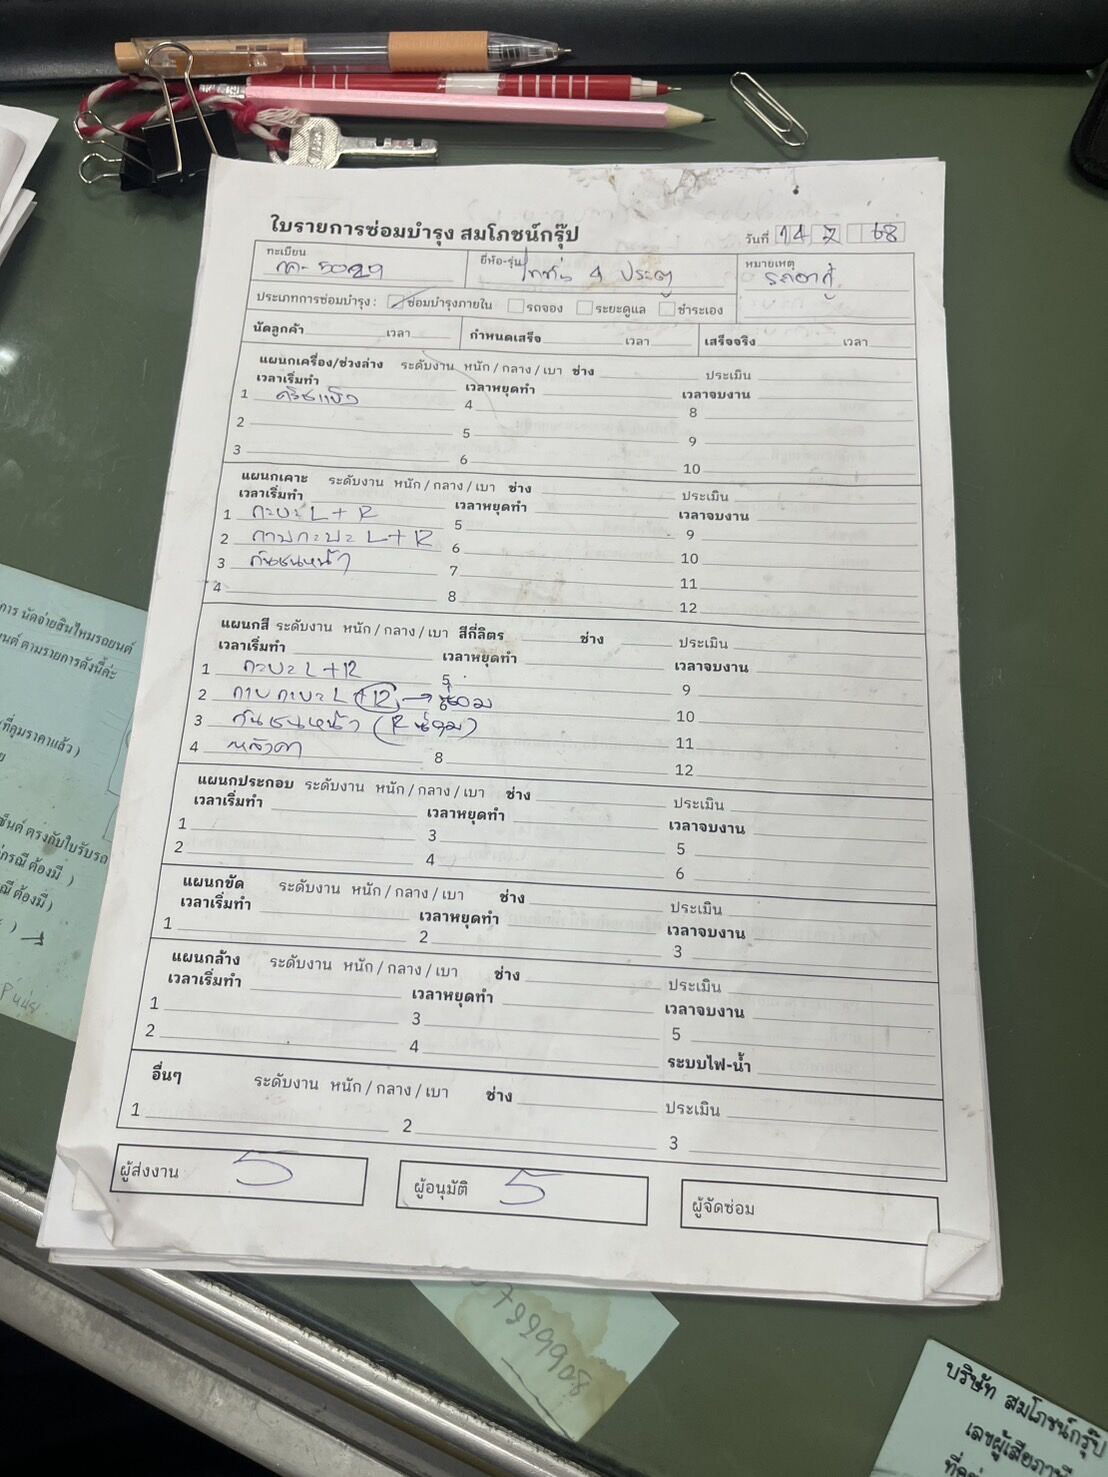 ใบรายการซ่อมบำรุง สมโภชน์กรุ๊ป
วันที่ 14 7 68
ทะเบียน
5029
ยี่ห้อ-รุ่น 4 ประตู
หมายเหตุ
ประเภทการซ่อมบำรุง : ซ่อมบำรุงภายใน รถจอง ระยะดูแล ชำระเอง
นัดลูกค้า เวลา กำหนดเสร็จ เวลา เสร็จจริง เวลา
แผนกเครื่อง/ช่วงล่าง ระดับงาน หนัก / กลาง / เบา ช่าง ประเมิน
เวลาเริ่มทำ เวลาหยุดทำ เวลาจบงาน
1 4 8
2 5 9
3 6 10
แผนกเคาะ ระดับงาน หนัก / กลาง / เบา ช่าง ประเมิน
เวลาเริ่มทำ เวลาหยุดทำ เวลาจบงาน
1 กะบะ L + R 5 9
2 กาบกะบะ L + R 6 10
3 กันชนหน้า 7 11
4 8 12
แผนกสี ระดับงาน หนัก / กลาง / เบา สีกี่ลิตร ช่าง ประเมิน
เวลาเริ่มทำ เวลาหยุดทำ เวลาจบงาน
1 กะบะ L + R 5 9
2 กาบกะบะ L + R → ซ่อม 10
3 กันชนหน้า 11
4 หลังคา 8 12
แผนกประกอบ ระดับงาน หนัก / กลาง / เบา ช่าง ประเมิน
เวลาเริ่มทำ เวลาหยุดทำ เวลาจบงาน
1 3 5
2 4 6
แผนกขัด ระดับงาน หนัก / กลาง / เบา ช่าง ประเมิน
เวลาเริ่มทำ เวลาหยุดทำ เวลาจบงาน
1 2 3
แผนกล้าง ระดับงาน หนัก / กลาง / เบา ช่าง ประเมิน
เวลาเริ่มทำ เวลาหยุดทำ เวลาจบงาน
1 3 5
2 4 ระบบไฟ-น้ำ
อื่นๆ ระดับงาน หนัก / กลาง / เบา ช่าง ประเมิน
1 2 3
ผู้ส่งงาน
ผู้อนุมัติ
ผู้จัดซ่อม
การ นัดจ่ายสินไหมรถยนต์
ยนต์ ตามรายการดังนี้ค่ะ
(ที่คุมราคาแล้ว)
ตรงกับใบรับรถ
กรณี ต้องมี )
ณี ต้องมี )
บริษัท สมโภชน์กรุ๊ป